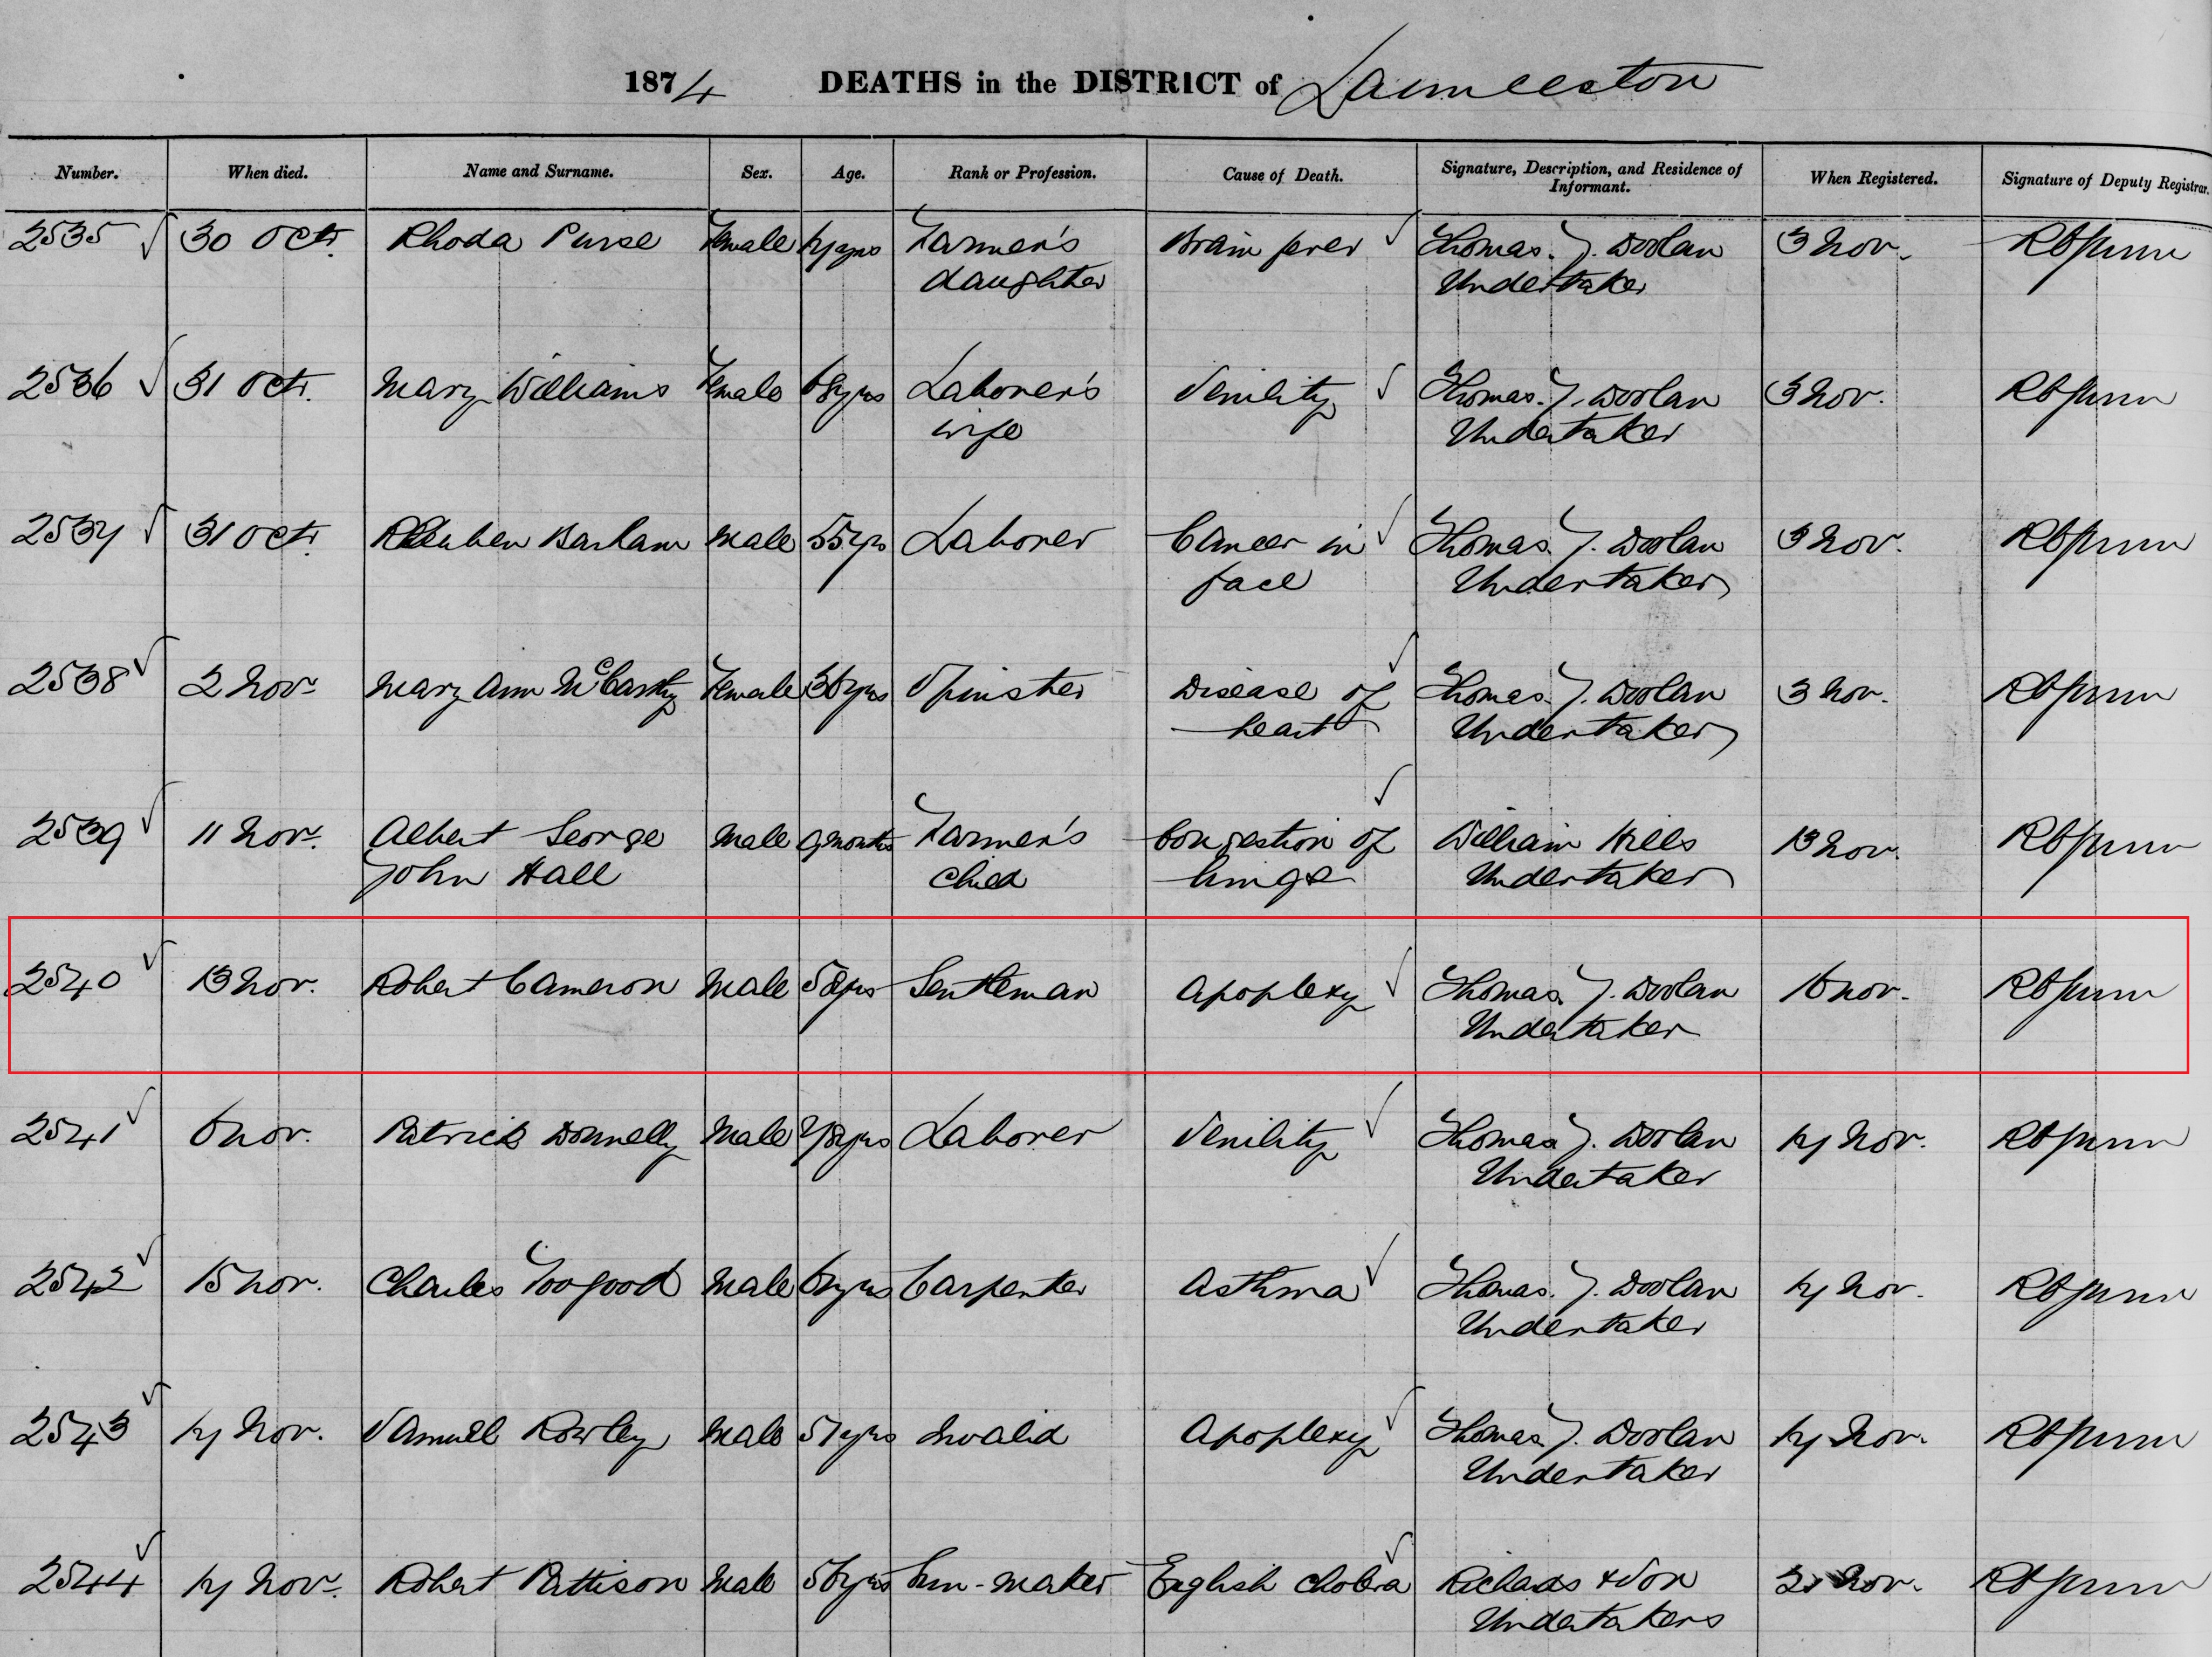 1874 DEATHS in the DISTRICT of Launceston
Number. When died. Name and Surname. Sex. Age. Rank or Profession. Cause of Death. Signature, Description, and Residence of Informant. When Registered. Signature of Deputy Registrar.
2535 30 Octr. Rhoda Purse Female 17yrs Farmer's Brain fever Thomas. J. Doolan 3 Nov.
daughter Undertaker
2536 31 Octr. Mary Williams Female 68yrs Laborer's Senility Thomas. J. Doolan 3 Nov.
wife Undertaker
2537 31 Octr. Reuben Barham Male 55yrs Laborer Cancer in Thomas. J. Doolan 3 Nov.
face Undertaker
2538 2 Novr. Mary Ann McCarthy Female 36yrs Spinster Disease of Thomas. J. Doolan 3 Nov.
heart Undertaker
2539 11 Novr. Albert George Male 9 months Farmer's Congestion of William Hills 13 Nov.
John Hall child lungs Undertaker
2540 13 Nov. Robert Cameron Male 58yrs Gentleman Apoplexy Thomas. J. Doolan 16 Nov.
Undertaker
2541 6 Nov. Patrick Donnelly Male 78yrs Laborer Senility Thomas J. Doolan 17 Nov.
Undertaker
2542 15 Nov. Charles Toogood Male Carpenter Asthma Thomas. J. Doolan 17 Nov.
Undertaker
2543 17 Nov. Samuel Rowley Male 57yrs Invalid Apoplexy Thomas J. Doolan 17 Nov.
Undertaker
2544 17 Novr. Robert Pattison Male 56yrs Gun-maker English cholera Richards & Son Nov.
Undertakers